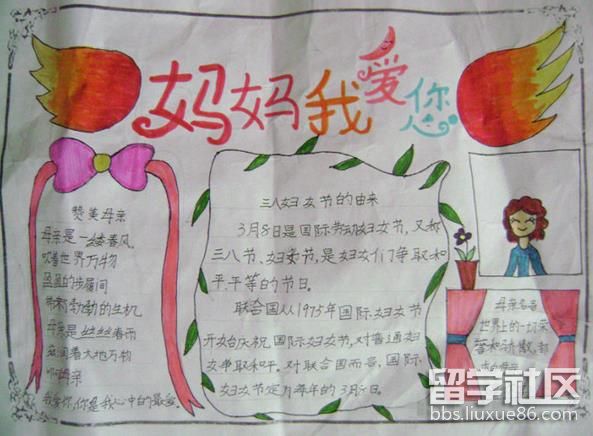 妈妈我爱您
赞美母亲
母亲是一缕春风,
吹着世界万物
盈盈的步履间
带来勃勃的生机
母亲是丝丝春雨
滋润着大地万物
啊母亲
我爱你,你是我心中的最爱。
三八妇女节的由来
3月8日是国际劳动妇女节,又称
三八节、妇女节,是妇女们争取和
平、平等的节日。
联合国从1975年国际妇女节
开始庆祝国际妇女节,对普通妇
女争取和平。对联合国而言,国际
妇女节定为每年的3月8日。
母亲名言
世界上的一切荣
留学社区
bbs.liuxue86.com